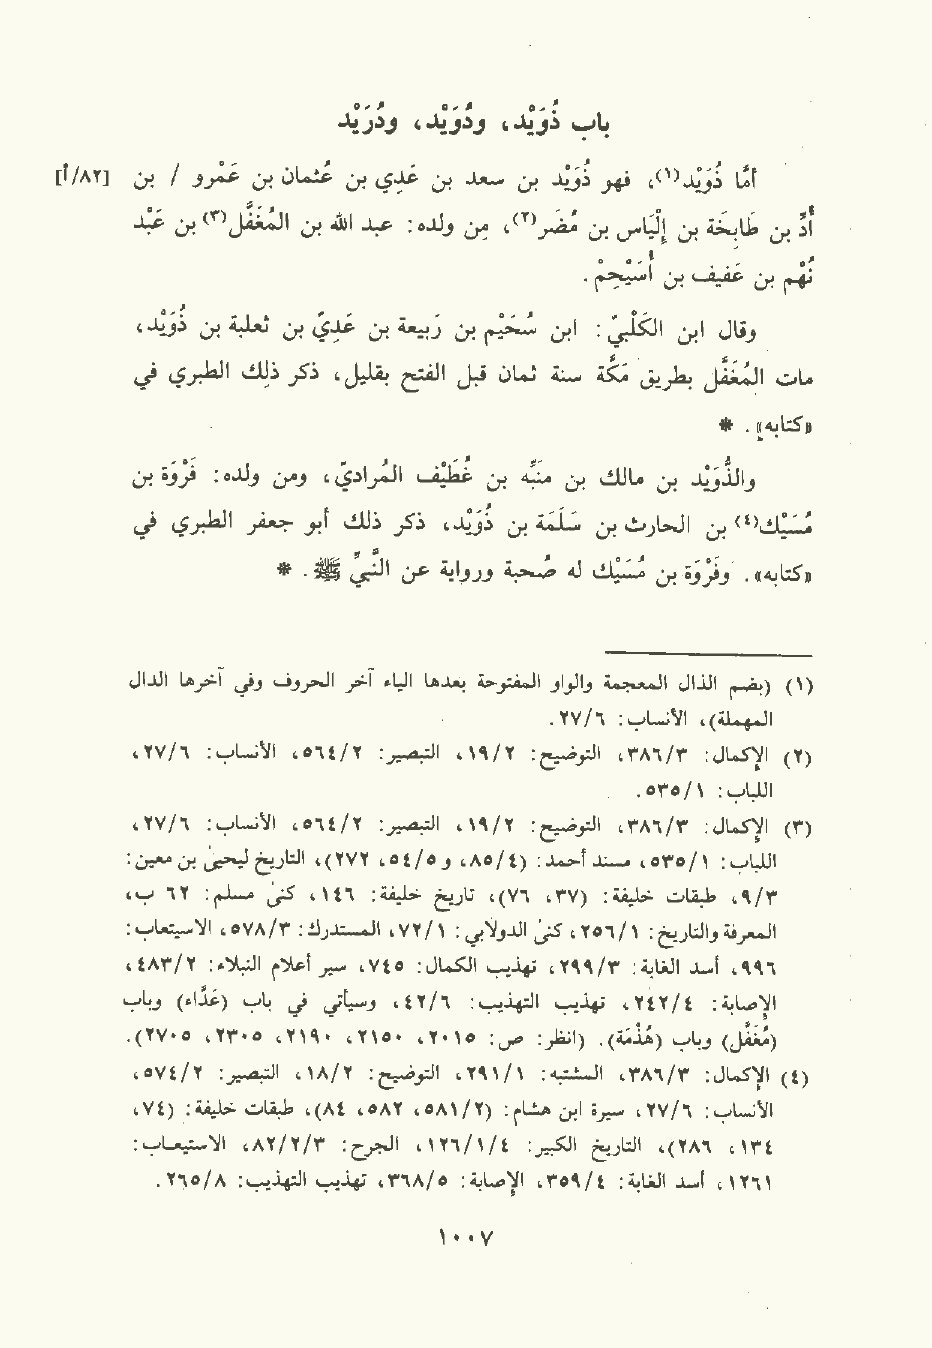 باب ذُوَيْد، ودُوَيْد، ودُرَيْد
أمَّا ذُوَيْد(١)، فهو ذُوَيْد بن سعد بن عَدِي بن عُثمان بن عَمْرو / بن [٨٢/أ]
أُدِّ بن طَابِخَة بن إلْيَاس بن مُضَر(٢)، مِن ولده: عبد الله بن المُغَفَّل(٣) بن عَبْد
نُهْم بن عَفيف بن أُسَيْحِم.
وقال ابن الكَلْبيِّ: ابن سُحَيْم بن رَبيعة بن عَدِيّ بن ثعلبة بن ذُوَيْد،
مات المُغَفَّل بطريق مَكَّة سنة ثمان قبل الفتح بقليل، ذكر ذلك الطبري في
«كتابِه». *
والذُّوَيْد بن مالك بن مُنَبِّه بن غُطَيْف المُراديّ، ومن ولده: فَرْوَة بن
مُسَيْك(٤) بن الحارث بن سَلَمَة بن ذُوَيْد، ذكر ذلك أبو جعفر الطبري في
«كتابه». وفَرْوَة بن مُسَيْك له صُحبة ورواية عن النَّبيِّ ﷺ. *
(١) (بضم الذال المعجمة والواو المفتوحة بعدها الياء آخر الحروف وفي آخرها الدال
المهملة)، الأنساب: ٢٧/٦.
(٢) الإكمال: ٣٨٦/٣، التوضيح: ١٩/٢، التبصير: ٥٦٤/٢، الأنساب: ٢٧/٦،
اللباب: ٥٣٥/١.
(٣) الإكمال: ٣٨٦/٣، التوضيح: ١٩/٢، التبصير: ٥٦٤/٢، الأنساب: ٢٧/٦،
اللباب: ٥٣٥/١، مسند أحمد: (٨٥/٤، و٥٤/٥، ٢٧٢)، التاريخ ليحيى بن معين:
٩/٣، طبقات خليفة: (٣٧، ٧٦)، تاريخ خليفة: ١٤٦، كنى مسلم: ٦٢ ب،
المعرفة والتاريخ: ٢٥٦/١، كنى الدولابي: ٧٢/١، المستدرك: ٥٧٨/٣، الاستيعاب:
٩٩٦، أسد الغابة: ٢٩٩/٣، تهذيب الكمال: ٧٤٥، سير أعلام النبلاء: ٤٨٣/٢،
الإصابة: ٢٤٢/٤، تهذيب التهذيب: ٤٢/٦، وسيأتي في باب (عَدَّاء) وباب
(مُغَفَّل) وباب (هُذَمَة). (انظر: ص: ٢٠١٥، ٢١٥٠، ٢١٩٠، ٢٣٠٥، ٢٧٠٥).
(٤) الإكمال: ٣٨٦/٣، المشتبه: ٢٩١/١، التوضيح: ١٨/٢، التبصير: ٥٧٤/٢،
الأنساب: ٢٧/٦، سيرة ابن هشام: (٥٨١/٢، ٥٨٢، ٨٤)، طبقات خليفة: (٧٤،
١٣٤، ٢٨٦)، التاريخ الكبير: ١٢٦/١/٤، الجرح: ٨٢/٢/٣، الاستيعاب:
١٢٦١، أسد الغابة: ٣٥٩/٤، الإصابة: ٣٦٨/٥، تهذيب التهذيب: ٢٦٥/٨.
١٠٠٧